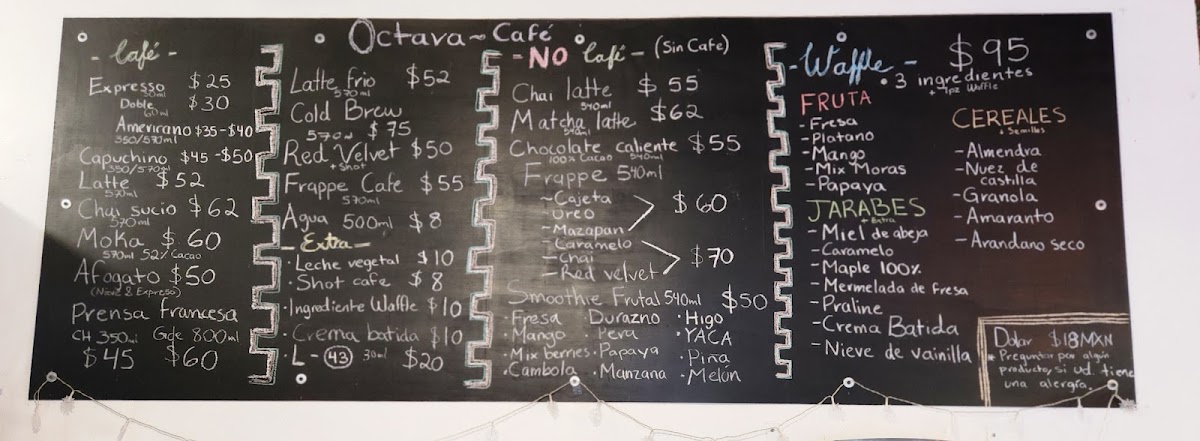 Octava~Café
- Café -
Expresso $25
30ml
Doble $30
60ml
Americano $35-$40
350/570ml
Capuchino $45-$50
350/570ml
Latte $52
570ml
Chai sucio $62
570ml
Moka $60
570ml 52% Cacao
Afogato $50
(Nieve & Expreso)
Prensa francesa
CH 350ml Gde 800ml
$45 $60
Latte frio $52
570ml
Cold Brew
570ml $75
Red Velvet $50
+ Shot
Frappe Cafe $55
570ml
Agua 500ml $8
- Extra -
· Leche vegetal $10
· Shot cafe $8
· Ingrediente Waffle $10
· Crema batida $10
· L-43 30ml $20
- NO Café - (Sin Cafe)
Chai latte $55
540ml
Matcha latte $62
540ml
Chocolate caliente $55
100% Cacao 540ml
Frappe 540ml
- Cajeta
Oreo $60
- Mazapan
- Caramelo
- Chai $70
- Red velvet
Smoothie Frutal 540ml $50
· Fresa Durazno · Higo
· Mango Pera · YACA
· Mix berries · Papaya · Piña
· Cambola · Manzana · Melón
- Waffle - $95
· 3 ingredientes
+ 1pz Waffle
FRUTA
- Fresa
- Platano
- Mango
- Mix Moras
- Papaya
JARABES
+ Extra
- Miel de abeja
- Caramelo
- Maple 100%
- Mermelada de fresa
- Praline
- Crema Batida
- Nieve de vainilla
CEREALES
+ Semillas
- Almendra
- Nuez de
castilla
- Granola
- Amaranto
- Arandano seco
Dolar $18MXN
* Preguntar por algún
producto, si ud. tiene
una alergia.